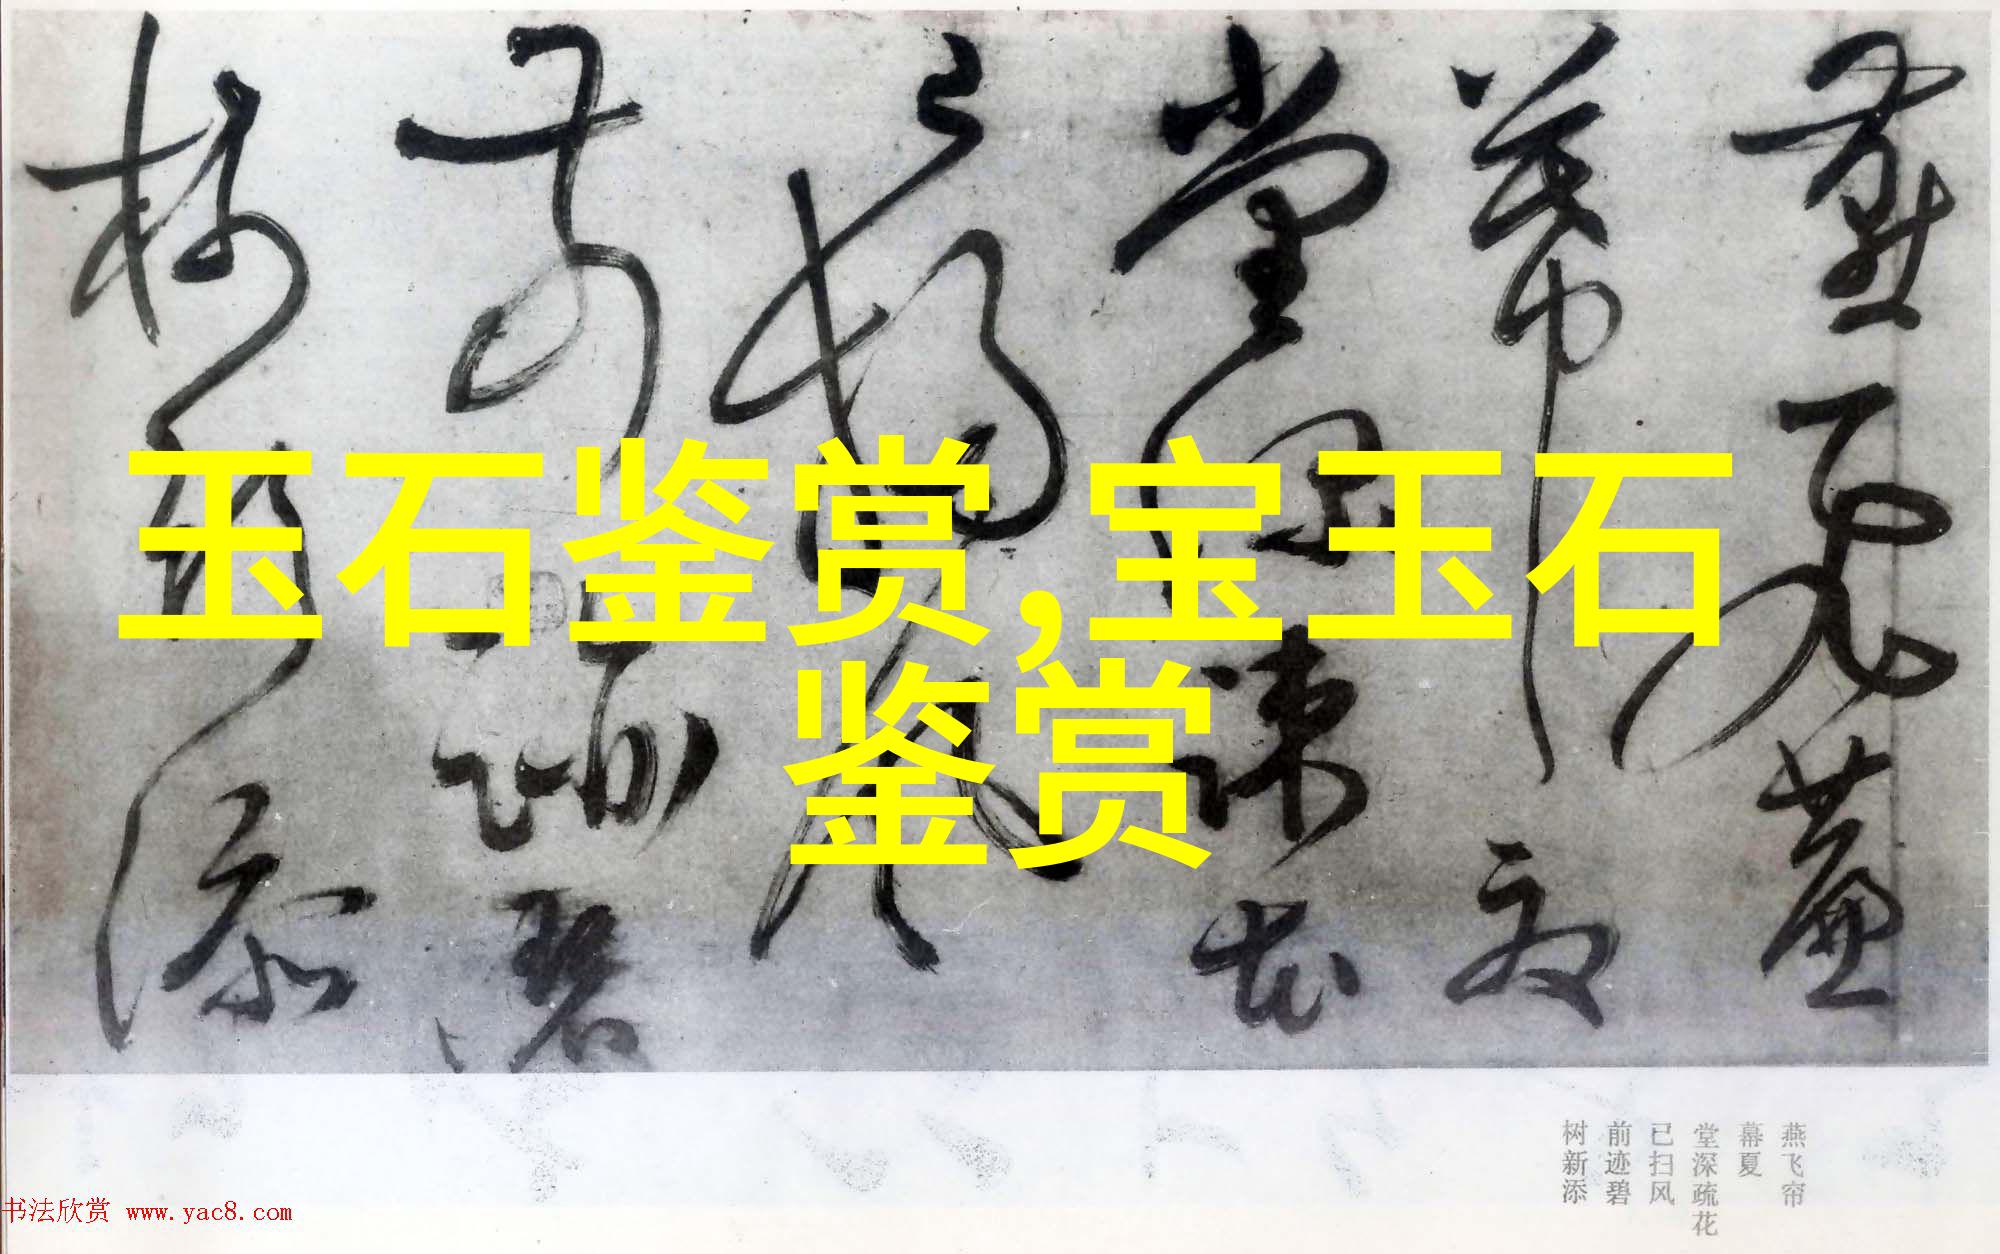 玉石鉴赏,宝玉石
鉴赏
燕飞帘
幕夏
堂深疏花
已扫风
前迹碧
树新添
书法欣赏 www.yac8.com